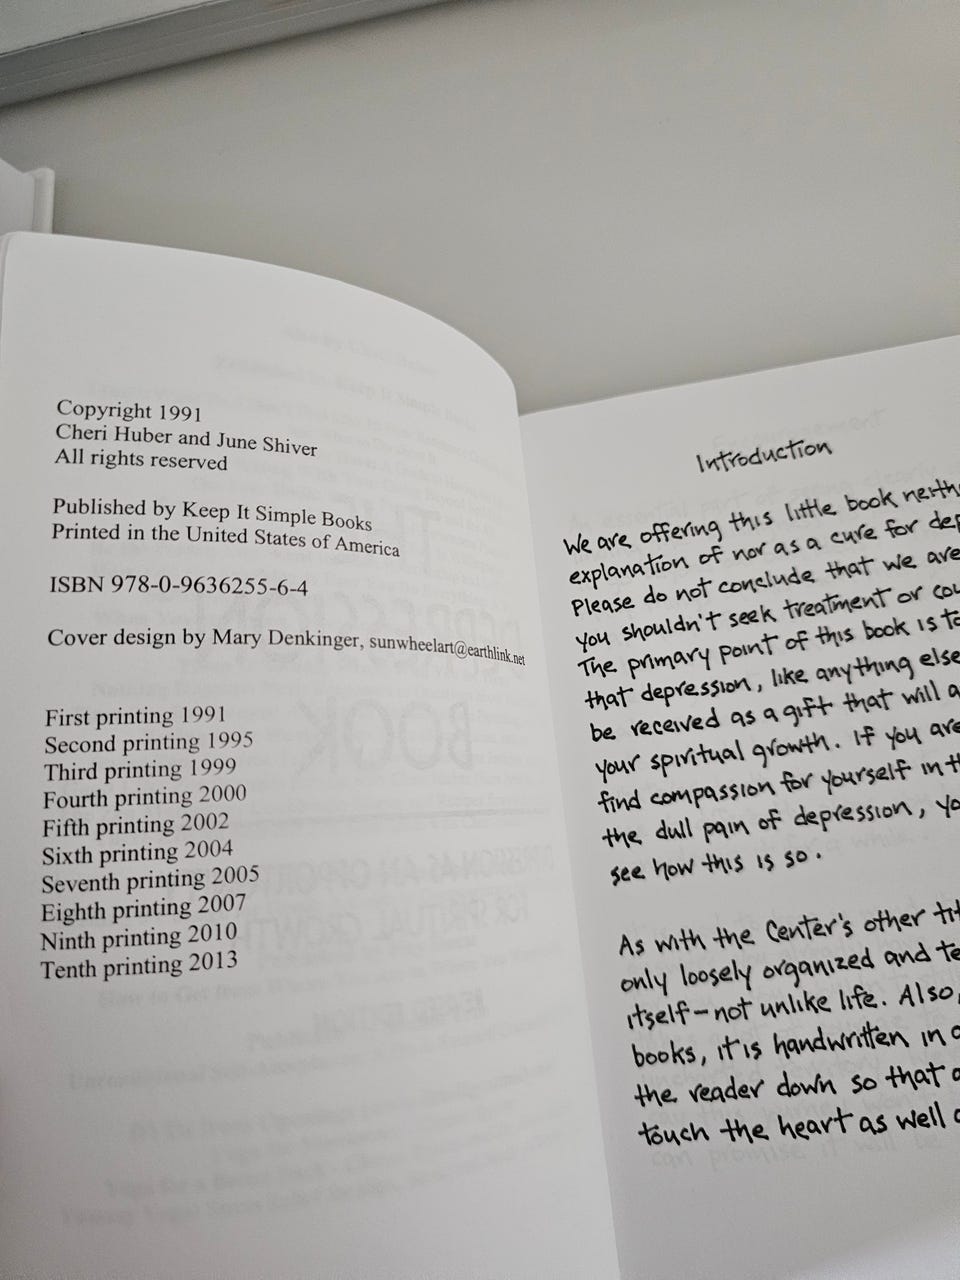 Copyright 1991
Cheri Huber and June Shiver
All rights reserved
Published by Keep It Simple Books
Printed in the United States of America
ISBN 978-0-9636255-6-4
Cover design by Mary Denkinger, sunwheelart@earthlink.net
First printing 1991
Second printing 1995
Third printing 1999
Fourth printing 2000
Fifth printing 2002
Sixth printing 2004
Seventh printing 2005
Eighth printing 2007
Ninth printing 2010
Tenth printing 2013
Introduction
We are offering this little book
explanation of nor as a cure for
Please do not conclude that we are
you shouldn't seek treatment or
The primary point of this book is
that depression, like anything else
be received as a gift that will
your spiritual growth. If you are
find compassion for yourself in
the dull pain of depression,
see how this is so.
As with the Center's other
only loosely organized and
itself-not unlike life. Also,
books, it is handwritten in
the reader down so that
touch the heart as well